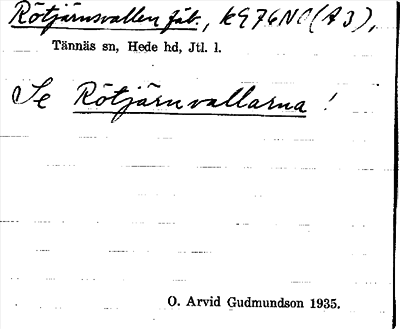 Rötjärnsvallen fäb., kg 76 NO (A3),
Tännäs sn, Hede hd, Jtl. l.
Se Rötjärnvallarna !
O. Arvid Gudmundson 1935.